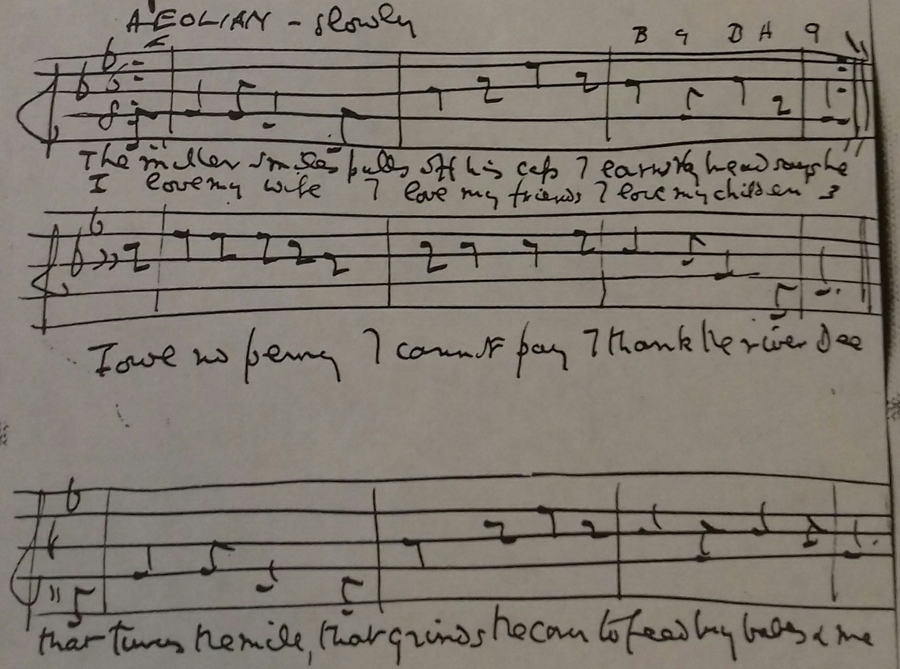 AEOLIAN - slowly
B G B A G
The miller smiles pulls off his cap & earnestly head says he
I love my wife I love my friends I love my children 3
I owe no penny I cannot pay I thank the river Dee
that turns the mile, that grinds the corn to feed my babes & me